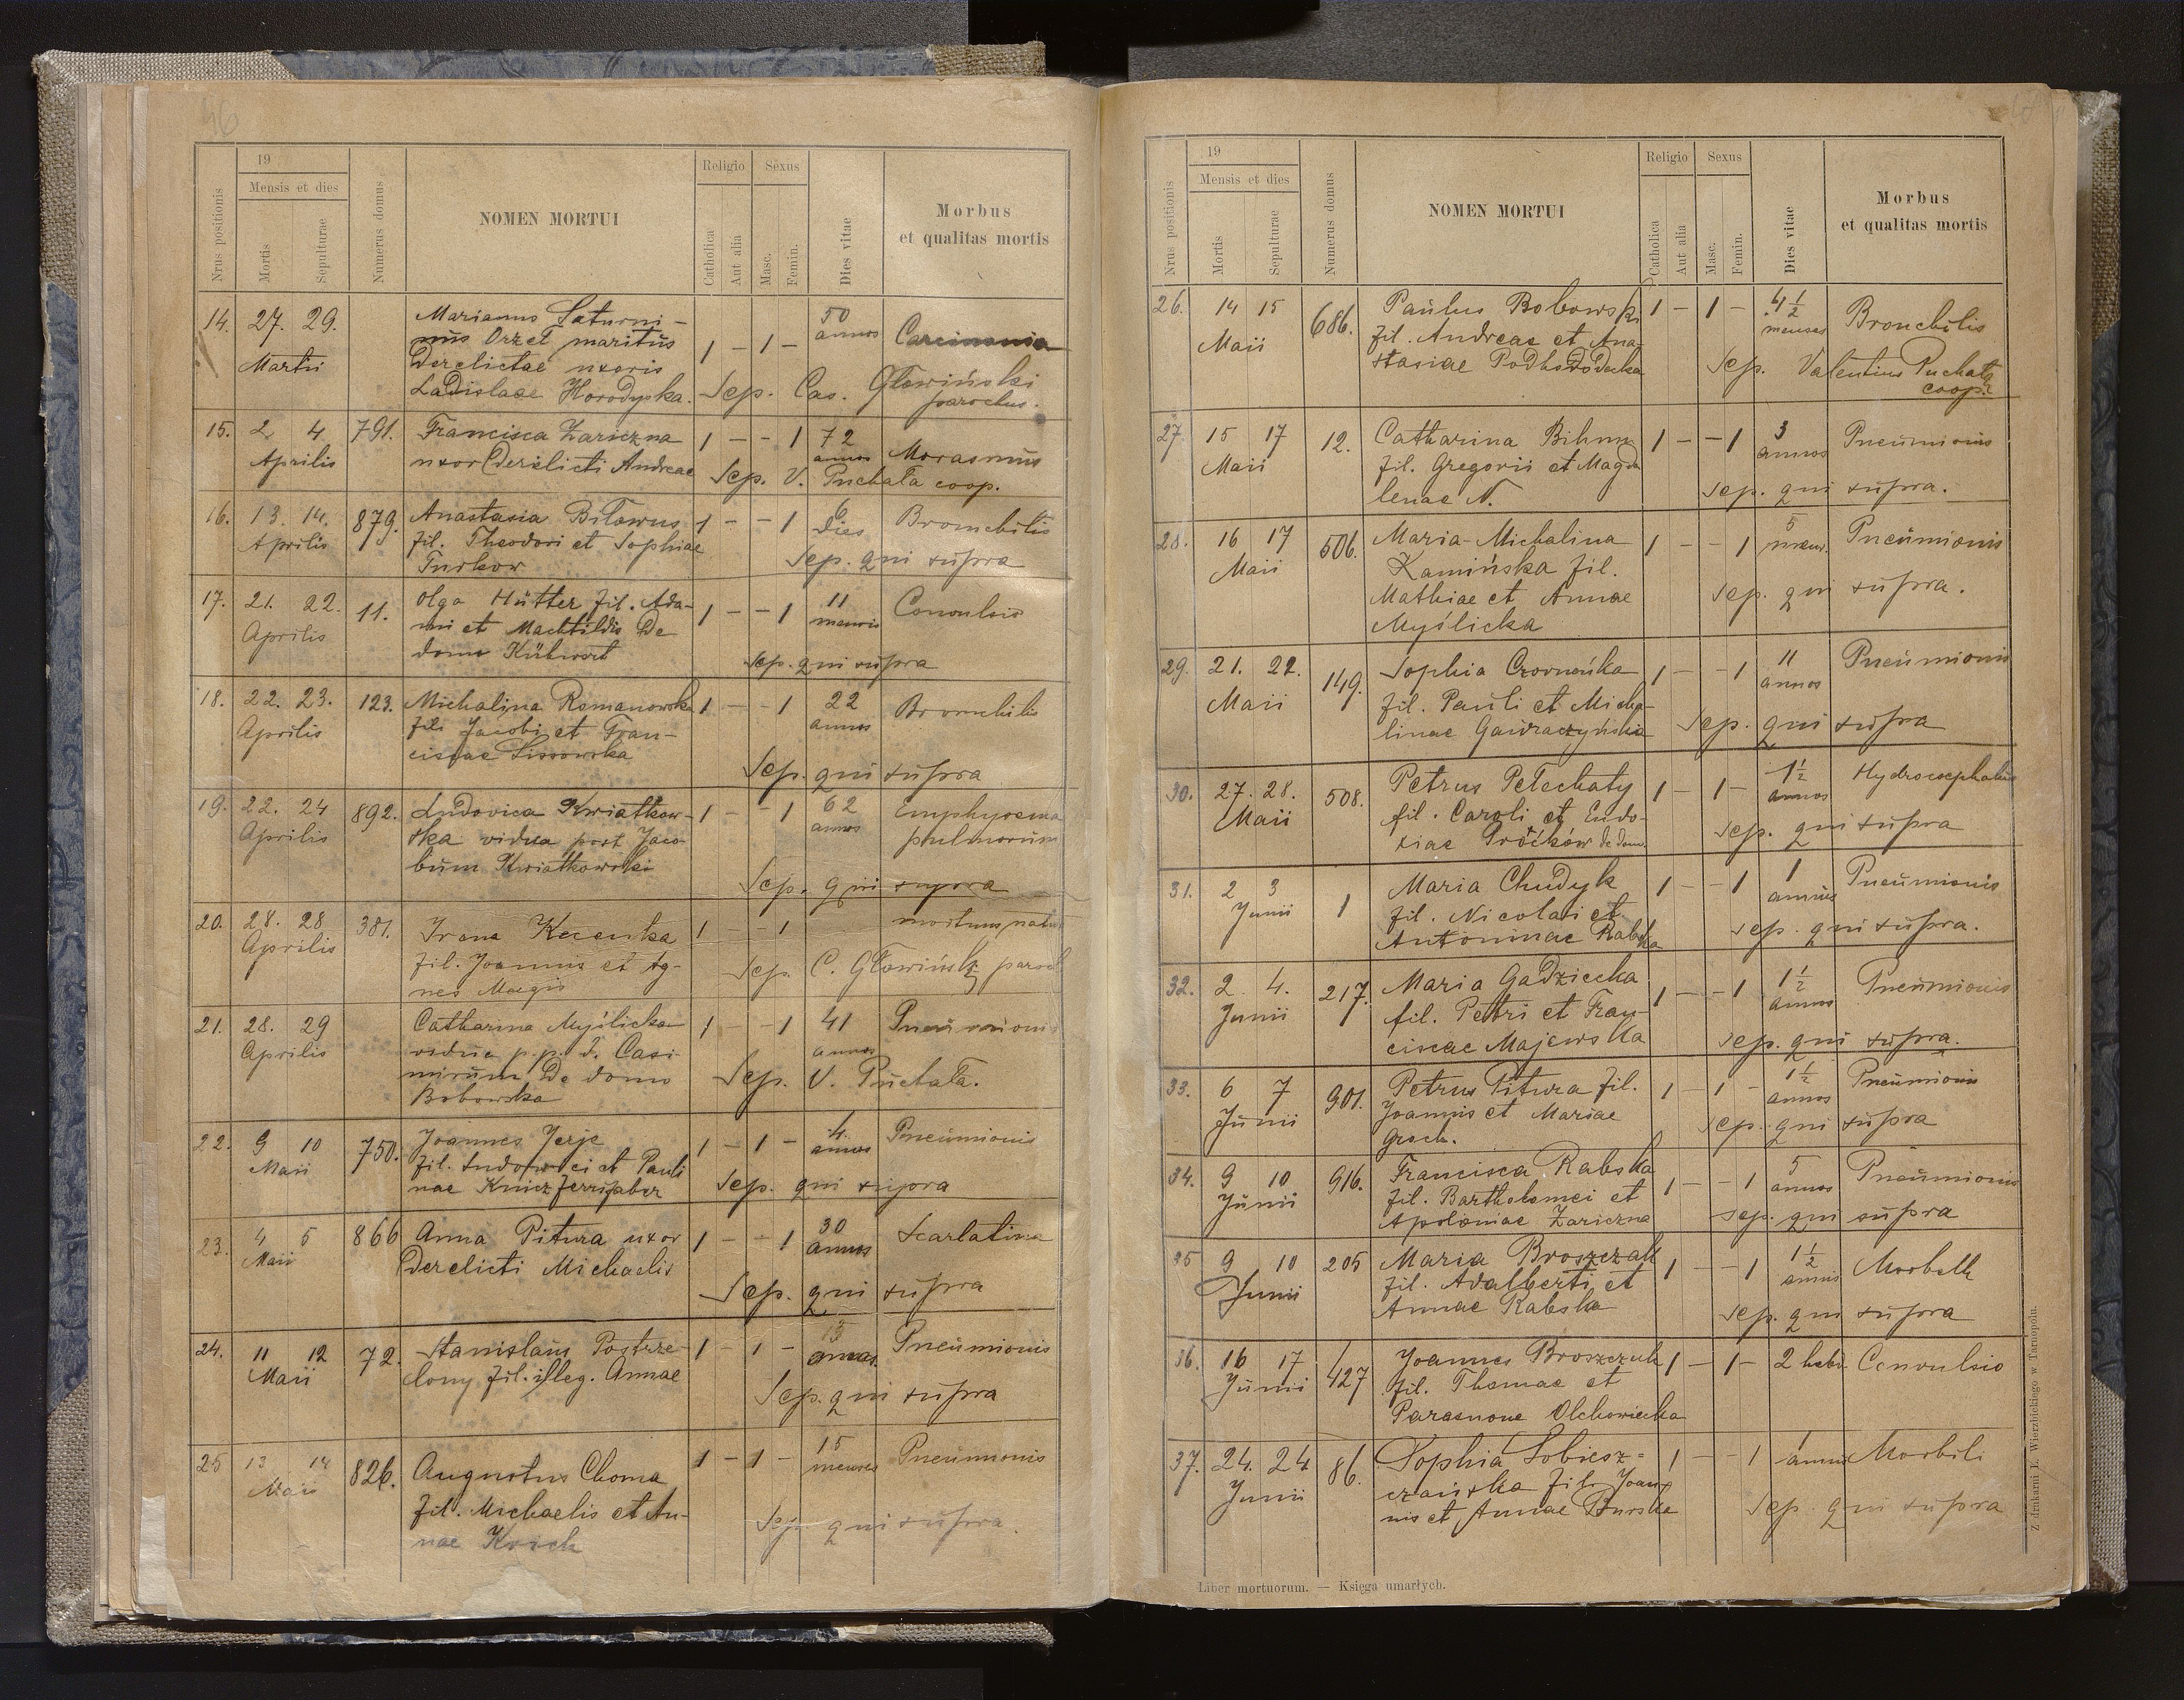 46
19
Mensis et dies
Nrus positionis
Mortis
Sepulturae
Numerus domus
NOMEN MORTUI
Religio
Sexus
Catholica
Aut alia
Masc.
Femin.
Dies vitae
Morbus
et qualitas mortis
14. 27. 29. Marianus Saturni- 50
nus Orzet maritus 1 - 1 - annos Carcinoma
Martii derelictae uxoris
Ladislaae Horodyska. Sep. Cas. Głowiński
parochus.
15. 2. 4. 791. Francisca Zariczna 1 - - 1 72
Aprilis uxor derelicti Andreae annos Morasmus
Sep. V. Puchała coop.
16. 13. 14. 879. Anastasia Biłowus 1 - - 1 6 Bronchitis
Aprilis fil. Theodori et Sophiae dies
Turkow Sep. qui supra
17. 21. 22. 11. Olga Hütter fil. Ada- 1 - - 1 11 Convulsio
Aprilis mi et Machtildis de mensis
domo Kühwort
Sep. qui supra
18. 22. 23. 123. Michalina Romanowska 1 - - 1 22 Bronchitis
Aprilis fil. Jacobi et Fran- annos
ciscae Lissowska
Sep. qui supra
19. 22. 24 892. Ludovica Kwiatkow- 1 - - 1 62 Emphysema
Aprilis ska vidua post Jaco- annos pulmorum
bum Kwiatkowski
Sep. qui supra
20. 28. 28 381. Irena 1 - - 1 mortuus natus
Aprilis fil. Joannis et Ag-
nes Sep. C. Głowiński paroch
21. 28. 29 Catharina Myślicka 1 - - 1 41 Pneumionis
Aprilis vidua p. p. d. Casi- annos
mirum de domo Sep. V. Puchała.
Bobowska
22. 9 10 750. Joannes Jerje 1 - 1 - 4. Pneumionis
Maii fil. Ludowici et Pauli annos
nae Sep. qui supra
23. 4 5 866 Anna Pitura uxor 1 - - 1 30 Scarlatina
Maii derelicti Michaelis annos
Sep. qui supra
24. 11 12 72. Stanislaus Postrze- 1 - 1 - 15 Pneumionis
Maii lony fil. illeg. Annae annos.
Sep. qui supra
25 13 14 826. Augustus Choma 1 - 1 - 15 Pneumionis
Maii fil. Michaelis et An- menses
nae Korch Sep. qui supra.
19
Mensis et dies
Nrus positionis
Mortis
Sepulturae
Numerus domus
NOMEN MORTUI
Religio
Sexus
Catholica
Aut alia
Masc.
Femin.
Dies vitae
Morbus
et qualitas mortis
26. 14 15 686. Paulus Bobowski 1 - 1 - 4 1/2 Bronchitis
Maii fil. Andreae et Ana- menses
stasiae Podhorodecka Sep. Valentius Puchała
coop.
27. 15 17 12. Catharina Bihun 1 - - 1 3 Pneumionis
Maii fil. Gregorii et Magda annos
lenae N. Sep. qui supra.
28. 16 17 506. Maria-Michalina 1 - - 1 5 Pneumionis
Maii Kamińska fil. mens.
Mathiae et Annae Sep. qui supra.
Myślicka
29. 21. 22. 149. Sophia 1 - - 1 11 Pneumionis
Maii fil. Pauli et Micha- annos
linae Gawraczyńska Sep. qui supra
30. 27. 28. 508. Petrus Pełechaty 1 - 1 - 1 1/2 Hydrocephalus
Maii fil. Caroli et Eudo- annos
xiae Procków de dom. Sep. qui supra
31. 2 3 1 Maria Chudyk 1 - - 1 1 Pneumionis
Junii fil. Nicolai et annus
Antoninae Rabska Sep. qui supra.
32. 2 4. 217. Maria Gadziecka 1 - - 1 1 1/2 Pneumionis
Junii fil. Petri et Fran- annos
ciscae Majewska Sep. qui supra.
33. 6 7 901. Petrus Pitura fil. 1 - 1 - 1 1/2 Pneumionis
Junii Joannis et Mariae annos
Groch. Sep. qui supra
34. 9 10 916. Francisca Rabska 1 - - 1 5 Pneumionis
Junii fil. Bartholomei et annos
Apoloniae Zariczna Sep. qui supra
35 9 10 205 Maria Broszczak 1 - - 1 1 1/2 Morbelli
Junii fil. Adalberti et annis
Annae Rabska Sep. qui supra
36. 16 17 427 Joannes Broszczak 1 - 1 - 2 hebd. Convulsio
Junii fil. Thomae et
Olchowiecka
37. 24. 24 86. Sophia Sobiesz= 1 - - 1 1 Morbili
Junii czańska fil. Joan annus
nis et Annae Burska Sep. qui supra
Liber mortuorum. — Księga umarłych.
Z drukarni L. Wierzbickiego w Tarnopolu.